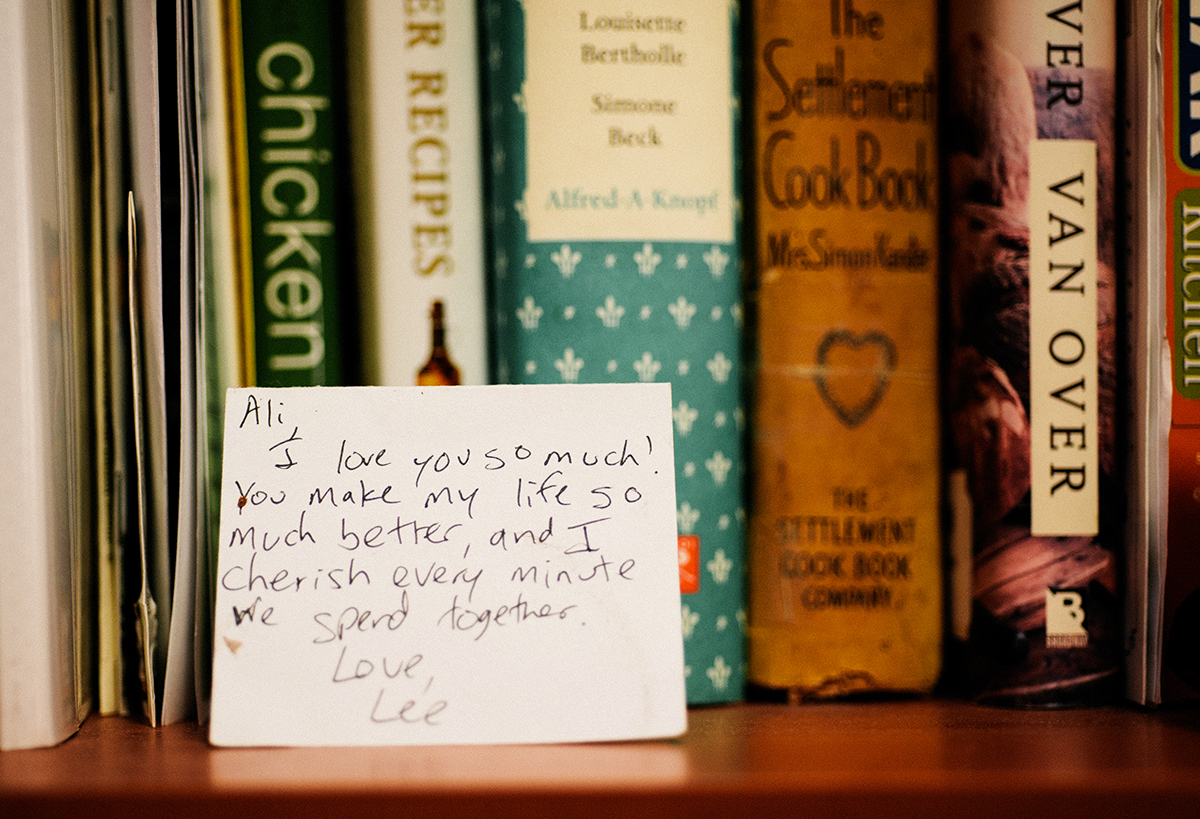 chicken
ER RECIPES
Louisette
Bertholle
Simone
Beck
Alfred·A·Knopf
The
Settlement
Cook Book
Mrs. Simon Kander
THE
SETTLEMENT
COOK BOOK
COMPANY
VER
VAN OVER
Kitchen
Ali,
I love you so much!
You make my life so
much better, and I
cherish every minute
We spend together.
Love,
Lee